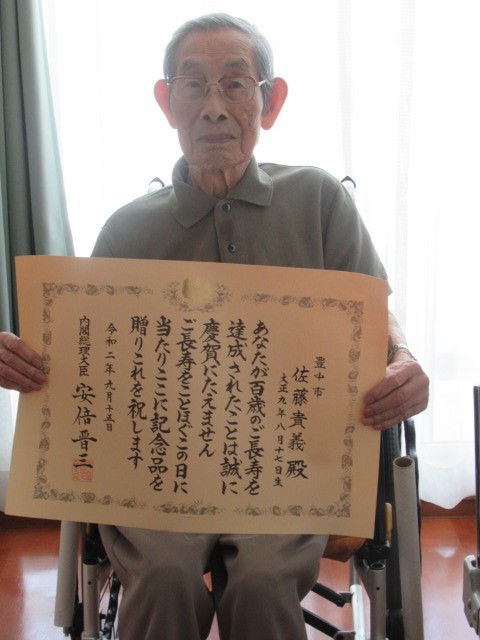 豊中市
佐藤貴義殿
大正九年八月十七日生
あなたが百歳のご長寿を
達成されたことは誠に
慶賀にたえません
ご長寿をことほぐこの日に
当たりここに記念品を
贈りこれを祝します
令和二年九月十五日
内閣総理大臣 安倍晋三